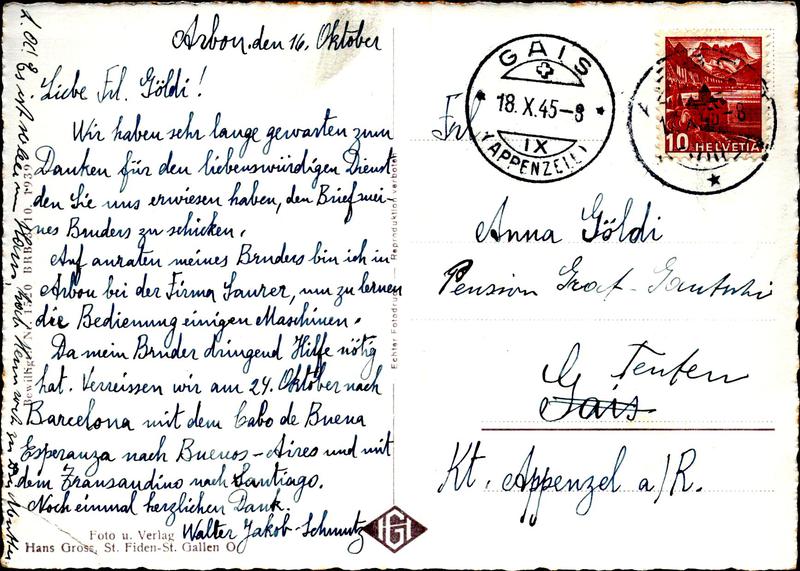 Arbon, den 16. Oktober
Liebe Frl. Göldi!
Wir haben sehr lange gewarten zum
Danken für den liebenswürdigen Dienst
den Sie uns erwiesen haben, den Brief mei-
nes Bruders zu schicken.
Auf anraten meines Bruders bin ich in
Arbon bei der Firma Saurer, um zu lernen
die Bedienung einigen Maschinen.
Da mein Bruder dringend Hilfe nötig
hat. Verreissen wir am 24. Oktober nach
Barcelona mit dem Cabo de Buena
Esperanza nach Buenos-Aires und mit
dem Transandino nach Santiago.
Noch einmal herzlichen Dank.
Walter Jakob-Schmutz
Foto u. Verlag
Hans Gross, St. Fiden-St. Gallen O
HGI
Echter Fotodruck
Reproduktion verboten
GAIS
18.X.45-8
IX
(APPENZELL)
10 HELVETIA
Frl
Anna Göldi
Pension Graf-
Teufen
Gais
Kt. Appenzel a/R.